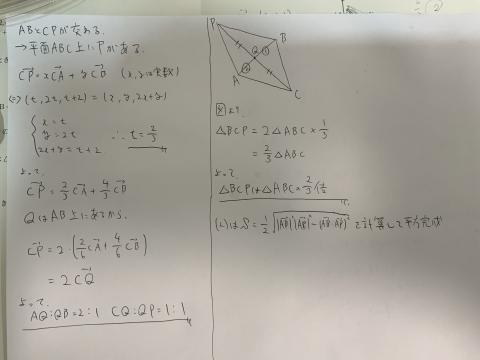 ABとCPが交わる.
→平面ABC上にPがある.
CP→=xCA→+yCB→ (x,yは実数)
⇔(t,2t,t+2)=(x,y,2x+y)
{x=t
y=2t
2x+y=t+2 ∴t=2/3
よって.
CP→=2/3CA→+4/3CB→
QはAB上にあるから.
CP→=2・(2/6CA→+4/6CB→)
=2CQ→
よって.
AQ:QB=2:1 CQ:QP=1:1
P
B
Q ①
②
A
C
図より
△BCP=2△ABC×1/3
=2/3△ABC
よって.
△BCPは△ABCの2/3倍
(2)はS=1/2√|AB→|²|AP→|²-(AB→・AP→)²で計算して平方完成